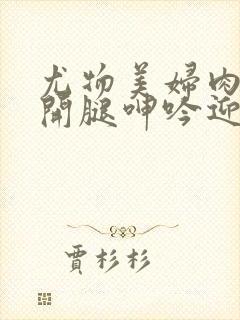 尤物美婦肉
開腿呻吟迎
賈杉杉